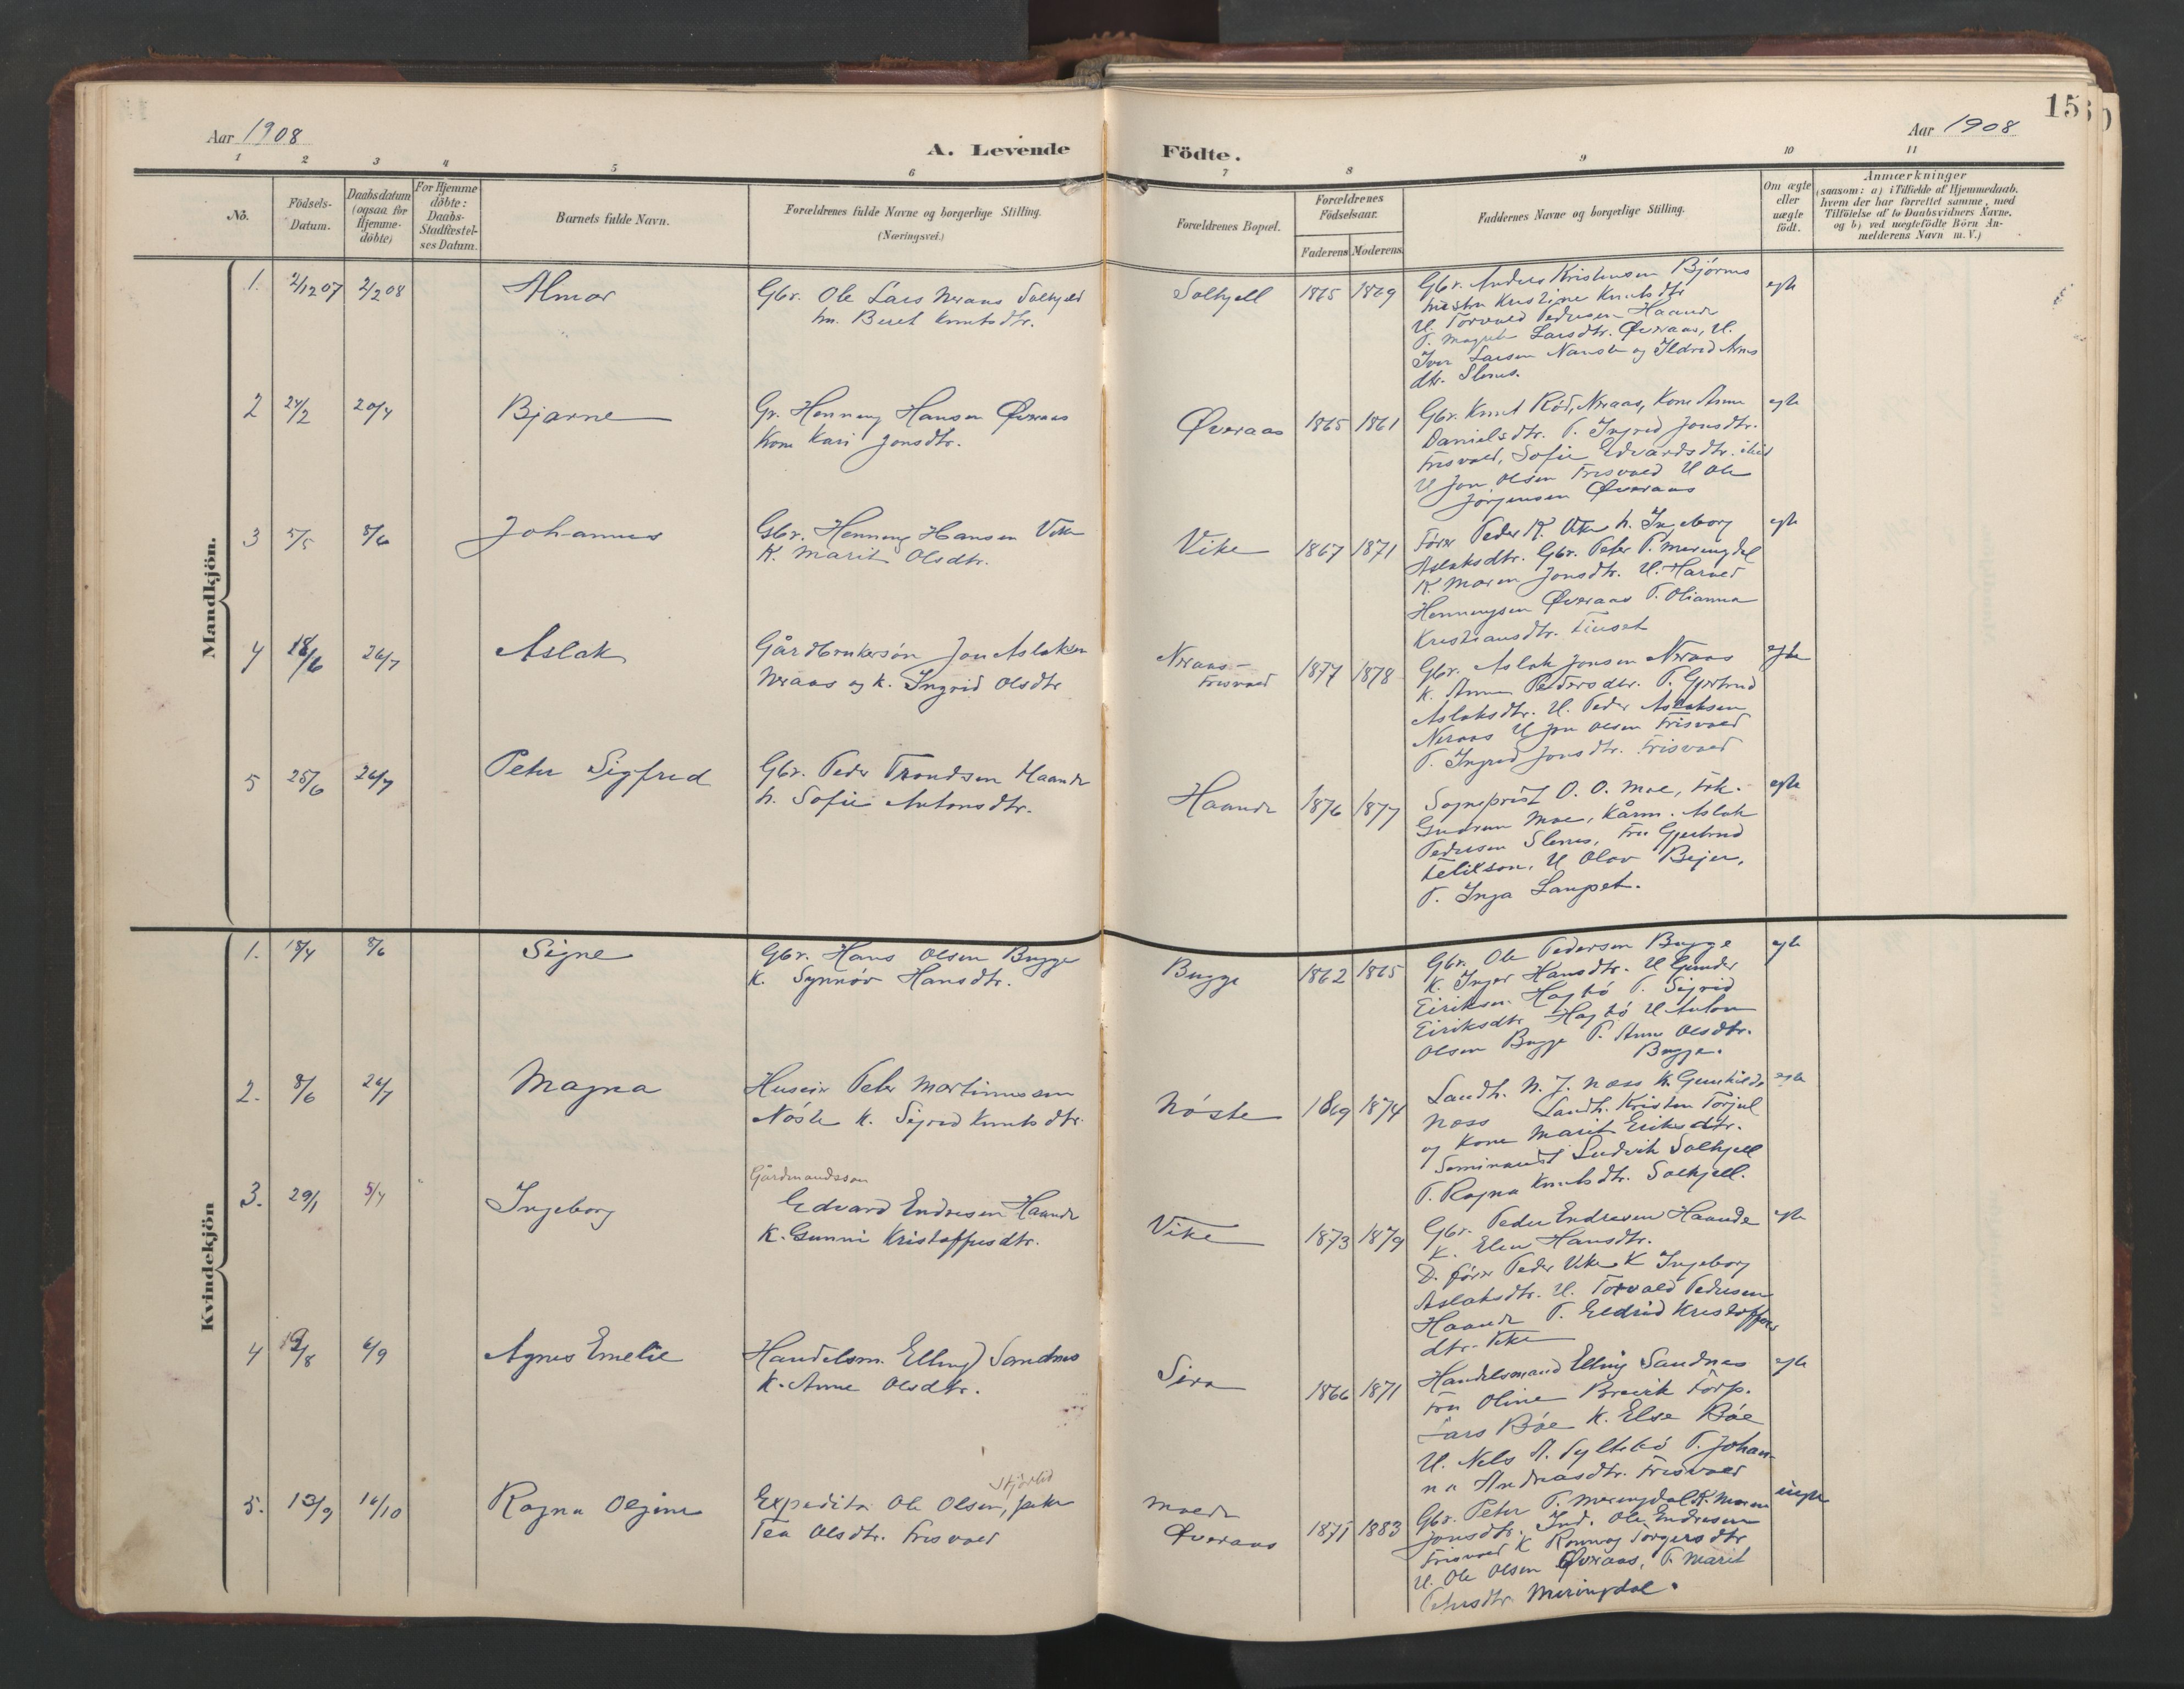 Aar 1908
A. Levende
Födte.
Aar 1908
15
1 2 3 4 5 6 7 8 9 10 11
No.
Födsels-
Datum.
Daabsdatum
(ogsaa for
Hjemme-
döbte)
For Hjemme
döbte:
Daabs-
Stadfæstel-
ses Datum.
Barnets fulde Navn.
Forældrenes fulde Navne og borgerlige Stilling.
(Næringsvei.)
Forældrenes Bopæl.
Forældrenes
Födselsaar.
Faderens Moderens
Faddernes Navne og borgerlige Stilling.
Om ægte
eller
uægte
födt.
Anmærkninger
(saasom: a) i Tilfælde af Hjemmedaab,
hvem der har forrettet samme, med
Tilföielse af to Daabsvidners Navne,
og b) ved uægtefödte Börn An-
melderens Navn m. V.)
Mandkjön.
1. 2/12 07 2/2 08 Almar
Gbr. Ole Lars Neraas Solkjell
hu. Beret Knutsdtr.
Solkjell 1865 1869
Gbr. Anders Kristensen Bjørnes
hustru Kristine Knutsdtr
U. Torvald Pedersen Haande
P. Magrete Larsdtr. Øveraas, U.
Iver Larsen Nauste og Ildrid Arns
dtr. Slenes.
egte
2 24/2 20/4 Bjarne
Gr. Henning Hansen Øveraas
Kone Kari Jonsdtr.
Øveraas 1865 1861
Gbr. Knut Rød, Neraas, Kone Anne
Danielsdtr. P. Ingrid Jonsdtr.
Frisvold, Sofie Edvardsdtr. ibid
U Jon Olsen Frisvold U Ole
Jørgensen Øveraas
egte
3 5/5 8/6 Johannes
Gbr. Henning Hansen Vike
K. Marit Olsdtr.
Vike 1867 1871
Før. Peder K. Vike h. Ingeborg
Aslaksdtr. Gbr. Peter P. Meringdal
K Maren Jonsdtr. U. Harald
Henningsen Øveraas P. Olianna
Kristiansdtr. Finset
egte
4 18/6 26/7 Aslak
Gårdbrukersøn Jon Aslaksen
Neraas og k. Ingrid Olsdtr
Neraas-
Frisvold
1877 1878
Gbr. Aslak Jonsen Neraas
K. Anne Pedersdtr. P. Gjertrud
Aslaksdtr. U. Peder Aslaksen
Neraas U Jon Olsen Frisvold
P. Ingrid Jonsdtr. Frisvold
egte
5 25/6 26/7 Peter Sigfred
Gbr. Peder Trondsen Haande
h. Sofie Antonsdtr.
Haande 1876 1877
Sogneprest O. O. Moe, Frk.
Gudrun Moe, Kårm. Aslak
Pedersen Slenes, Fru Gjertrud
Felikson, U Olav Bejer,
P. Inga Langset.
egte
Kvindekjön
1. 18/4 8/6 Signe
Gbr. Hans Olsen Bugge
K. Synnøv Hansdtr.
Bugge 1862 1865
Gbr. Ole Pedersen Bugge
K. Inger Hansdtr. U Gunder
Eiriksen Hagbø P. Sigrid
Eiriksdtr Hagbø U Anton
Olsen Bugge P. Anne Olsdtr.
Bugge.
egte
2. 8/6 26/7 Magna
Huseier Peter Martinussen
Nøste K. Sigrid Knutsdtr.
Nøste 1869 1874
Landh. N. J. Næss K. Gunhilda
Næss Landh. Kristen Torjul
og Kone Marit Eriksdtr.
Seminarist Ludvik Solkjell
P. Ragna Knutsdtr. Solkjell.
egte
3. 29/1 5/4 Ingeborg
Gårdmandssøn
Edvard Endresen Haande
K. Gunni Kristoffersdtr.
Vike 1873 1879
Gbr. Peder Endresen Haande
K. Elen Hansdtr.
D. før. Peder Vike K Ingeborg
Aslaksdtr. U. Torvald Pedersen
Haande P. Eldrid Kristoffers
dtr. Vike
egte
4 19/8 6/9 Agnes Emelie
Handelsm. Elling Sandnes
K. Anne Olsdtr.
Sira 1866 1871
Handelsmand Elling Sandnes
Fru Oline Brevik Forp.
Lars Bøe K. Else Bøe
U. Nels A. Syltebø P. Johan-
na Andreasdtr. Frisvold
egte
5. 13/9 16/10 Ragna Olgine
Expeditør Ole Olsen, pike
Tea Olsdtr. Frisvold
Moder
Øveraas
1875 1883
Gbr. Peter P. Meringdal K. Maren
Jonsdtr. Ind. Ole Endresen
Frisvold K Ronnog Torgersdtr
U. Ole Olsen Øveraas, P. Marit
Petersdtr. Meringdal.
uegte